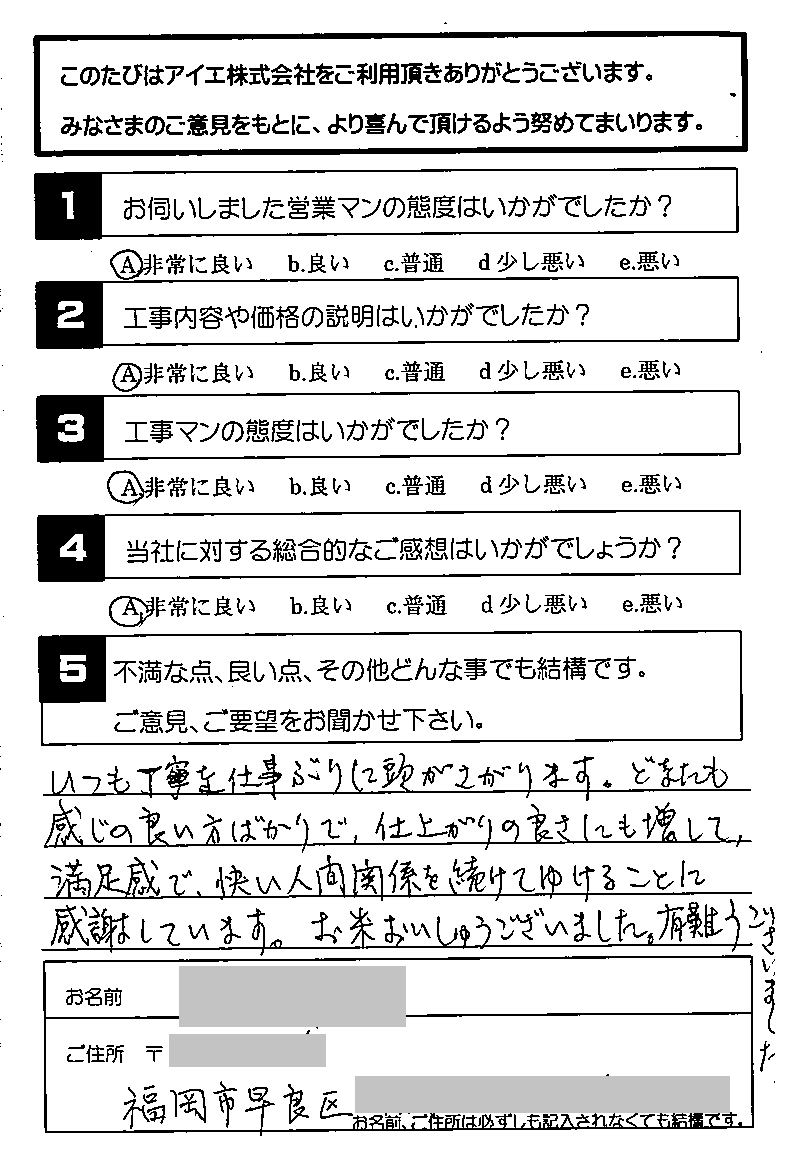 このたびはアイエ株式会社をご利用頂きありがとうございます。
みなさまのご意見をもとに、より喜んで頂けるよう努めてまいります。
1 お伺いしました営業マンの態度はいかがでしたか？
A.非常に良い b.良い c.普通 d少し悪い e.悪い
2 工事内容や価格の説明はいかがでしたか？
A.非常に良い b.良い c.普通 d少し悪い e.悪い
3 工事マンの態度はいかがでしたか？
A.非常に良い b.良い c.普通 d少し悪い e.悪い
4 当社に対する総合的なご感想はいかがでしょうか？
A.非常に良い b.良い c.普通 d少し悪い e.悪い
5 不満な点、良い点、その他どんな事でも結構です。
ご意見、ご要望をお聞かせ下さい。
いつも丁寧な仕事ぶりに頭がさがります。どなたも
感じの良い方ばかりで、仕上がりの良さにも増して、
満足感で、快い人間関係を続けてゆけることに
感謝しています。お米おいしゅうございました。有難うございました
お名前
ご住所 〒
福岡市早良区
お名前、ご住所は必ずしも記入されなくても結構です。